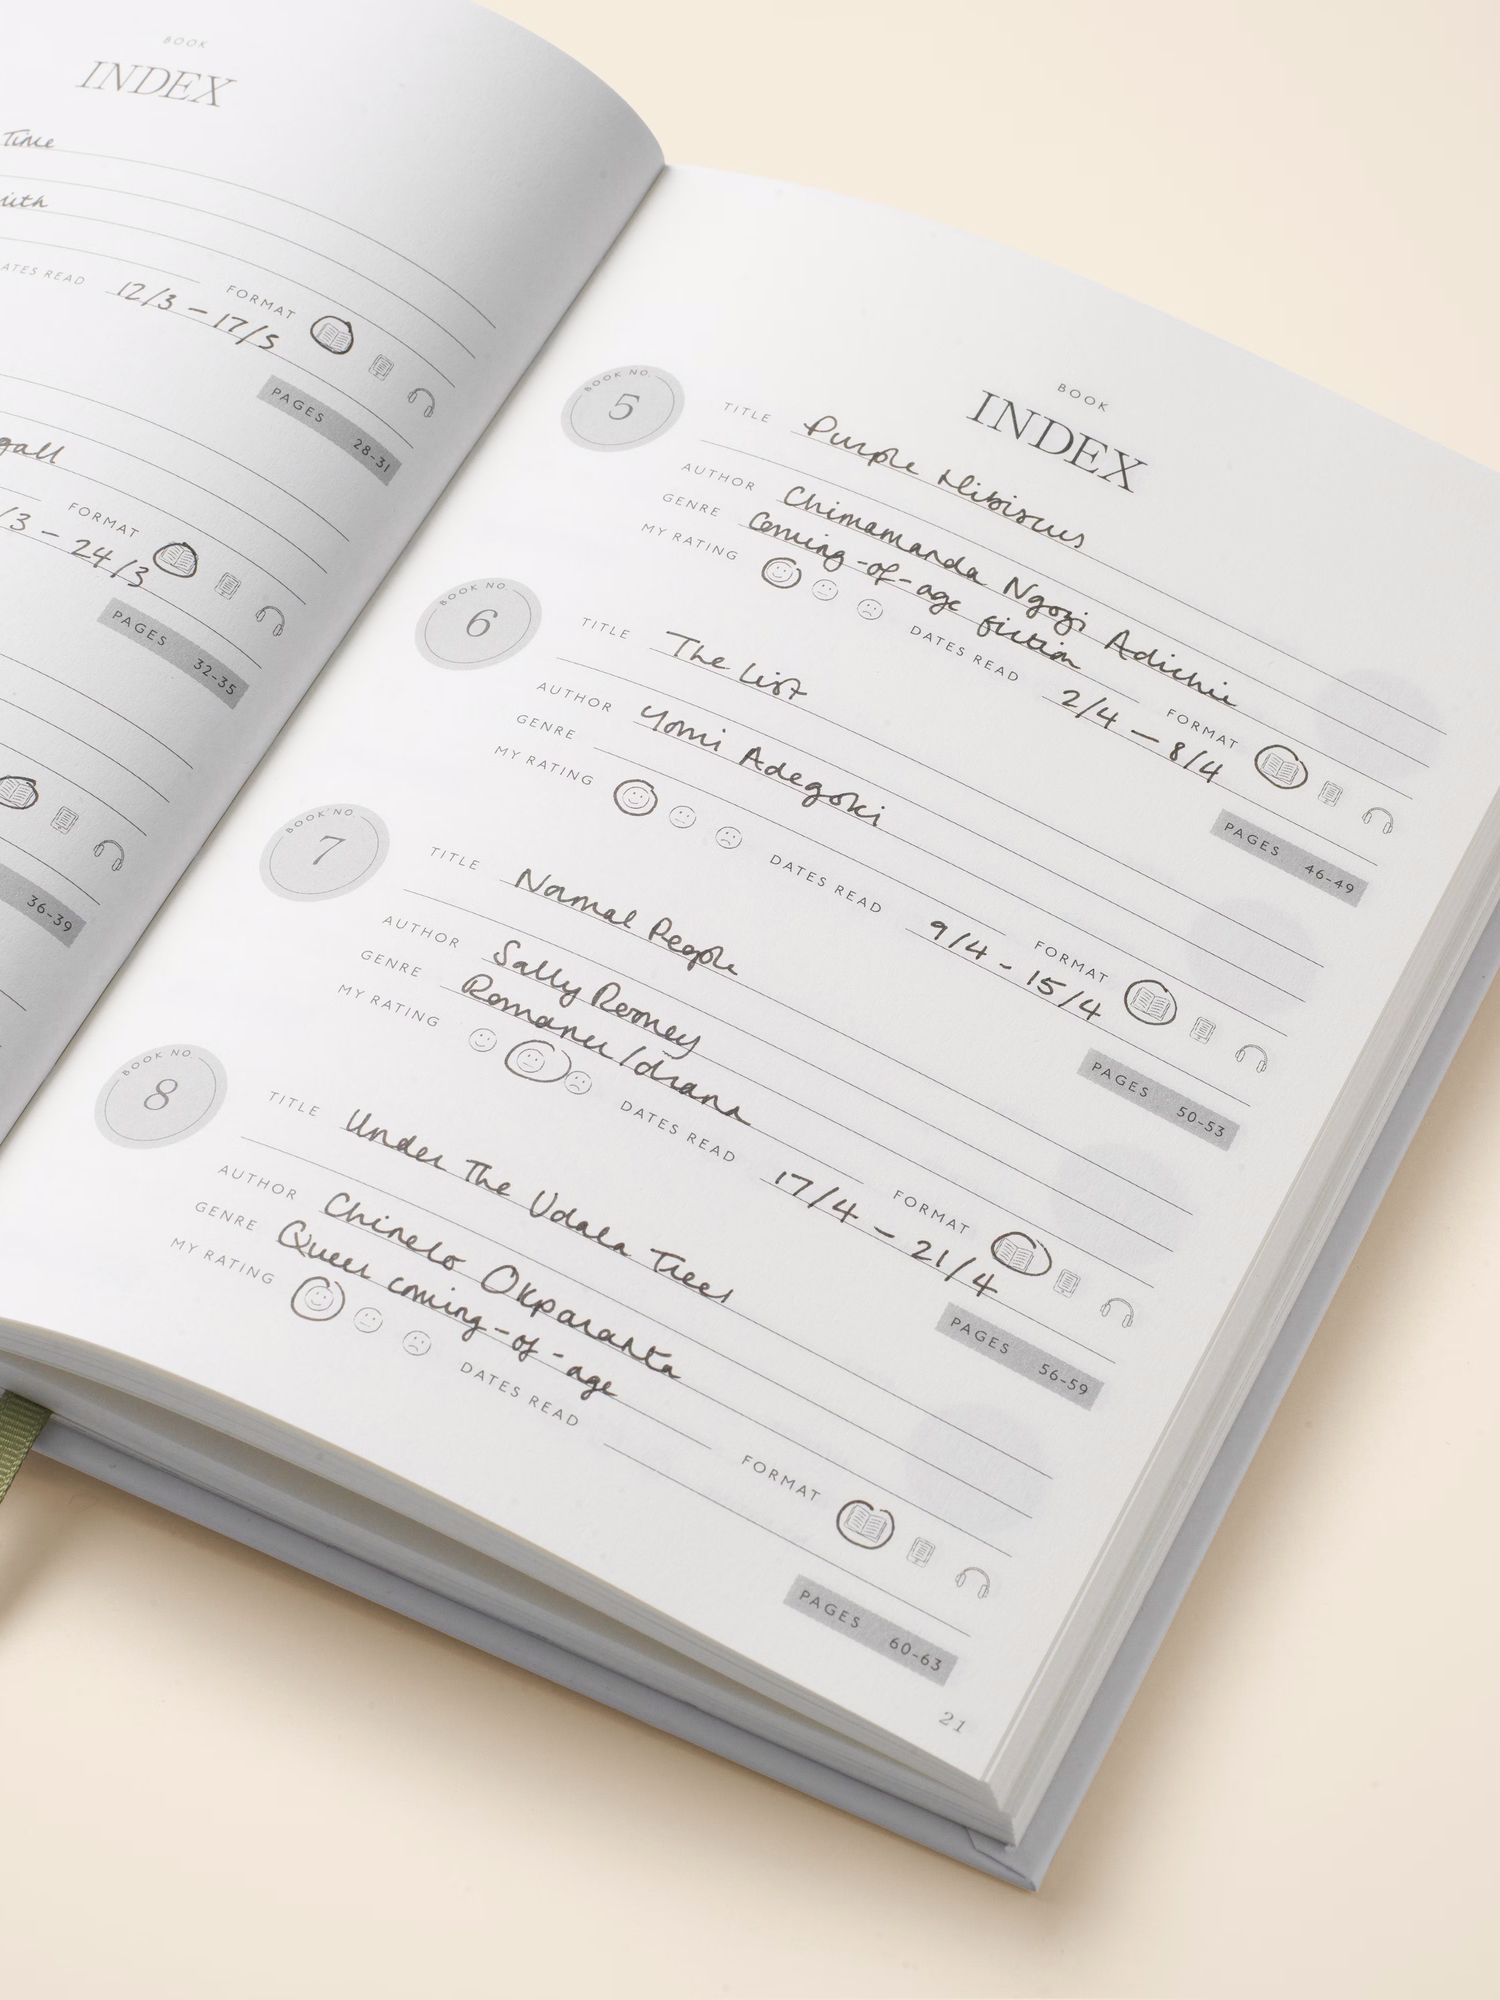 BOOK
INDEX
Time
ith
ATES READ 12/3 – 17/3 FORMAT
PAGES 28-31
gall
/3 – 24/3 FORMAT
PAGES 32-35
36-39
BOOK
INDEX
BOOK NO. 5
TITLE Purple Hibiscus
AUTHOR Chimamanda Ngozi Adichie
GENRE Coming-of-age fiction
MY RATING DATES READ 2/4 – 8/4 FORMAT
PAGES 46-49
BOOK NO. 6
TITLE The List
AUTHOR Yomi Adegoki
GENRE
MY RATING DATES READ 9/4 - 15/4 FORMAT
PAGES 50-53
BOOK NO. 7
TITLE Normal People
AUTHOR Sally Rooney
GENRE Romance/drama
MY RATING DATES READ 17/4 – 21/4 FORMAT
PAGES 56-59
BOOK NO. 8
TITLE Under The Udala Trees
AUTHOR Chinelo Okparanta
GENRE Queer coming-of-age
MY RATING DATES READ FORMAT
PAGES 60-63
21